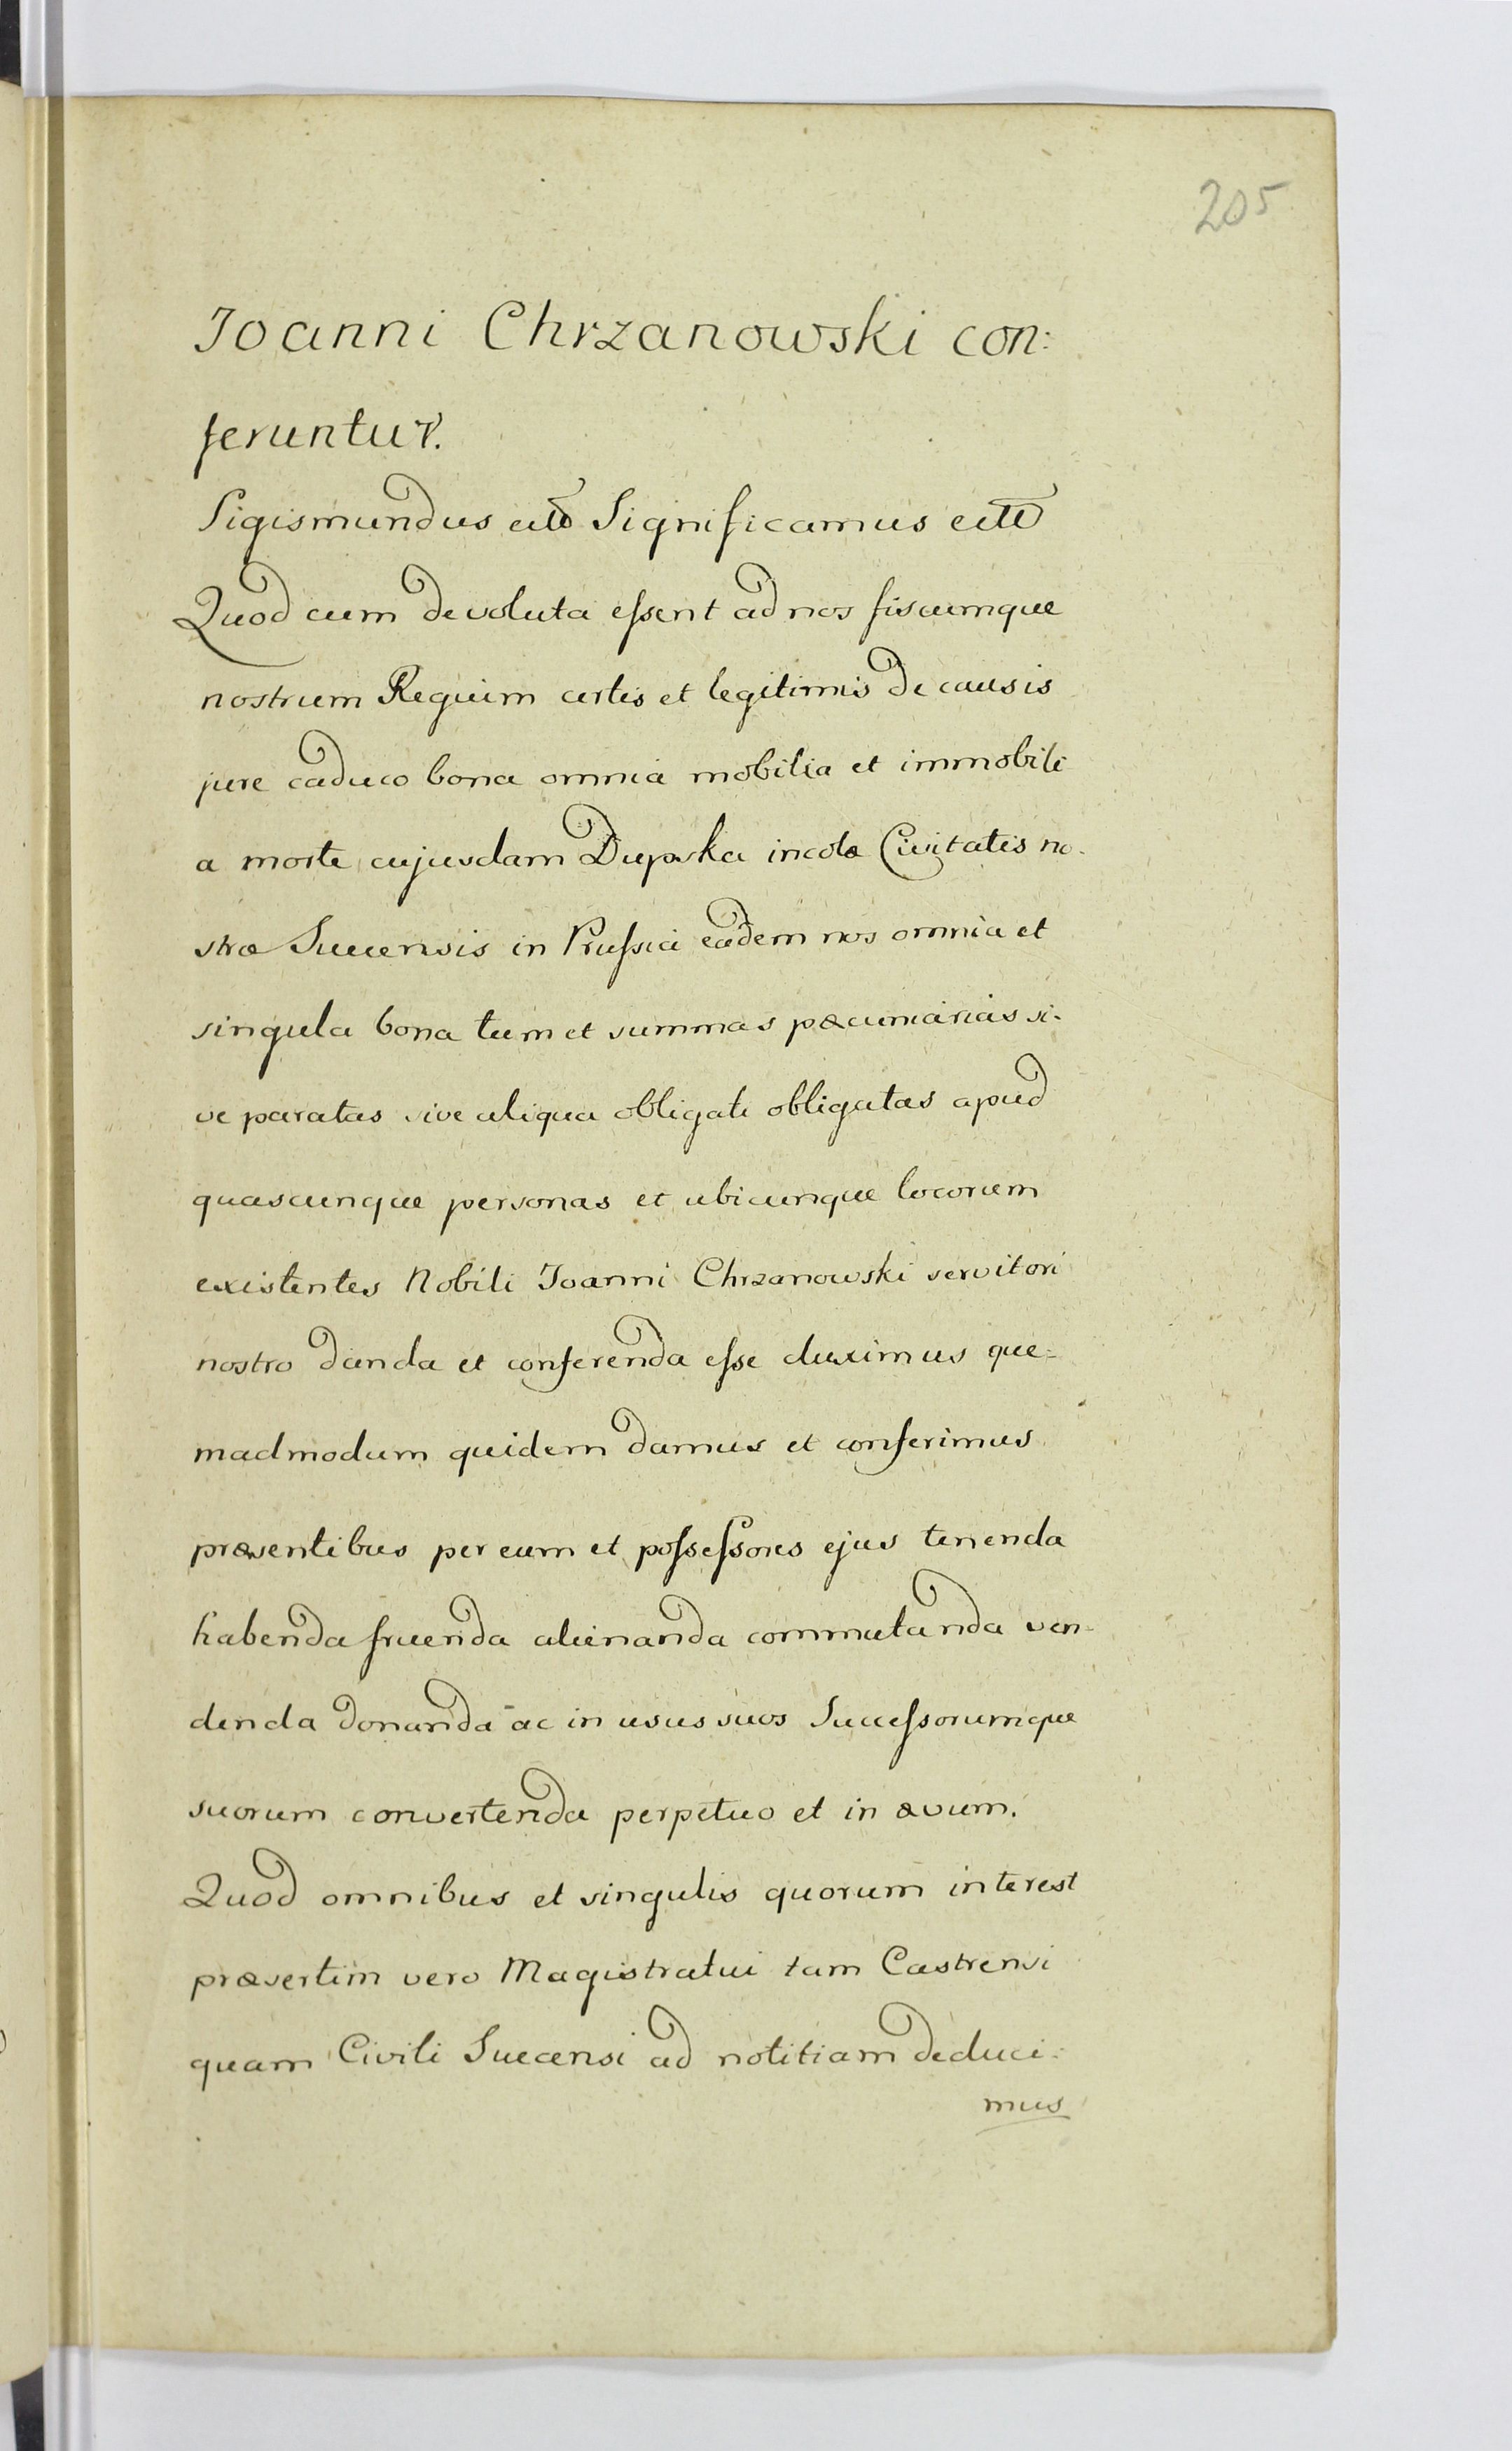 205
Joanni Chrzanowski con:
feruntur.
Sigismundus etc Significamus etc
Quod cum devoluta essent ad nos fiscumque
nostrum Regium certis et legitimis de causis
jure caduco bona omnia mobilia et immobili
a morte cujusdam Dupska incolæ Civitatis no-
stræ Suecensis in Prussia eadem nos omnia et
singula bona tum et summas pæcuniarias si-
ve paratas sive aliqua obligati obligatas apud
quascunque personas et ubicunque locorum
existentes Nobili Joanni Chrzanowski servitori
nostro danda et conferenda esse duximus que=
madmodum quidem damus et conferimus
præsentibus per eum et possessores ejus tenenda
habenda fruenda alienanda commutanda ven-
denda donanda ac in usus suos Successorumque
suorum convertenda perpetuo et in ævum.
Quod omnibus et singulis quorum interest
præsertim vero Magistratui tam Castrensi
quam Civili Suecensi ad notitiam deduci:
mus